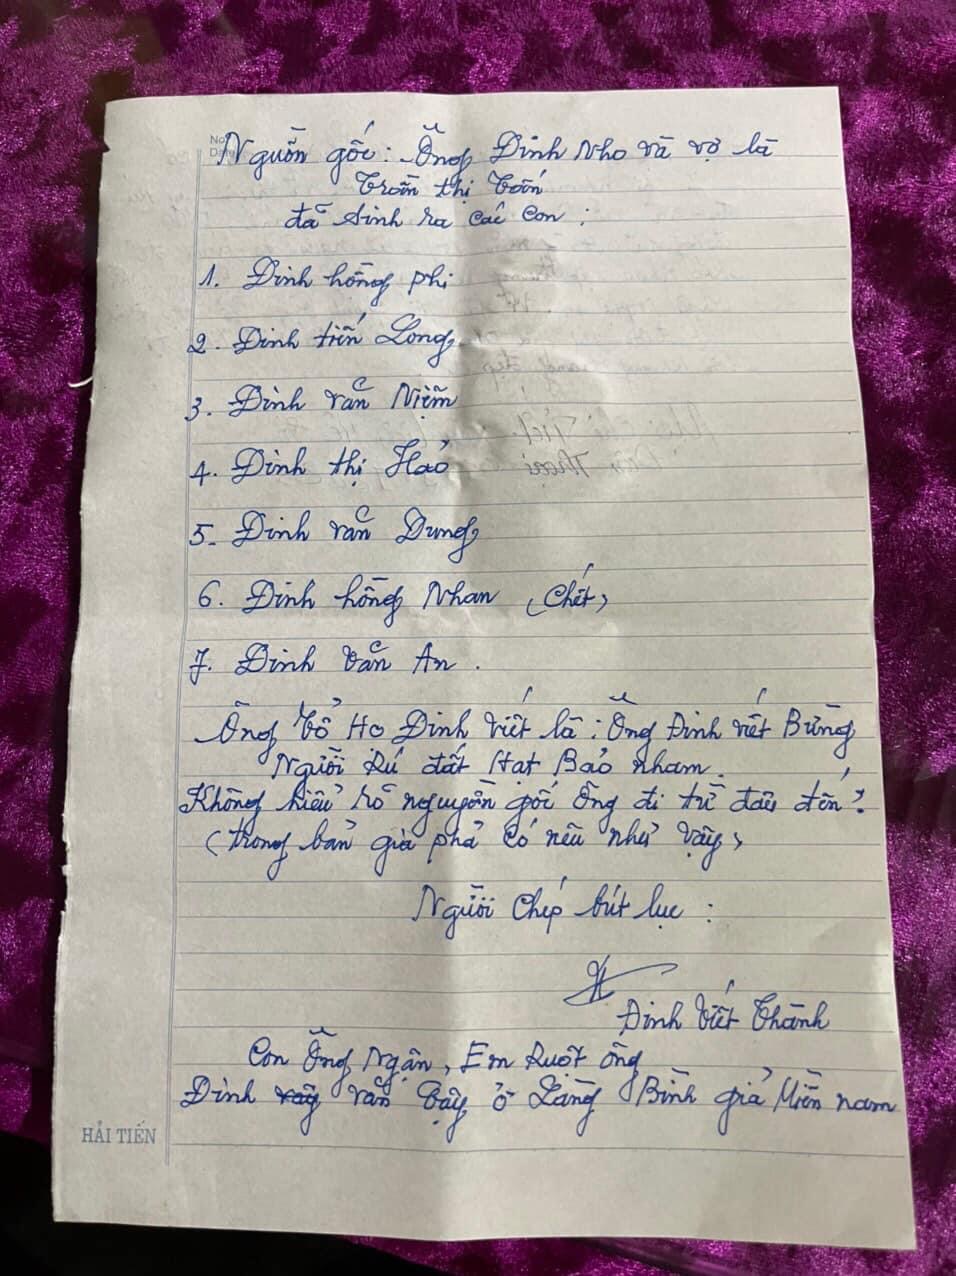 No
Date
Nguồn gốc: Ông Đinh Nho và vợ là
Trần thị Toán
đã sinh ra các con:
1. Đinh hồng phi
2. Đinh tiến Long
3. Đinh văn Niệm
4. Đinh thị Hảo
5. Đinh văn Dung
6. Đinh hồng Nhan (Chết)
7. Đinh văn An.
Ông tổ Họ Đinh viết là: Ông Đinh viết Bừng
Người Rú đất Hạt Bảo nham.
Không hiểu rõ nguyên gốc ông đi từ đâu đến?
(trong bản gia phả có nêu như vậy)
Người Chép bút lục:
Đinh Viết Thành
Con Ông Ngận, Em Ruột ông
Đinh văn Bảy ở Làng Bình giả Miền nam
HẢI TIẾN